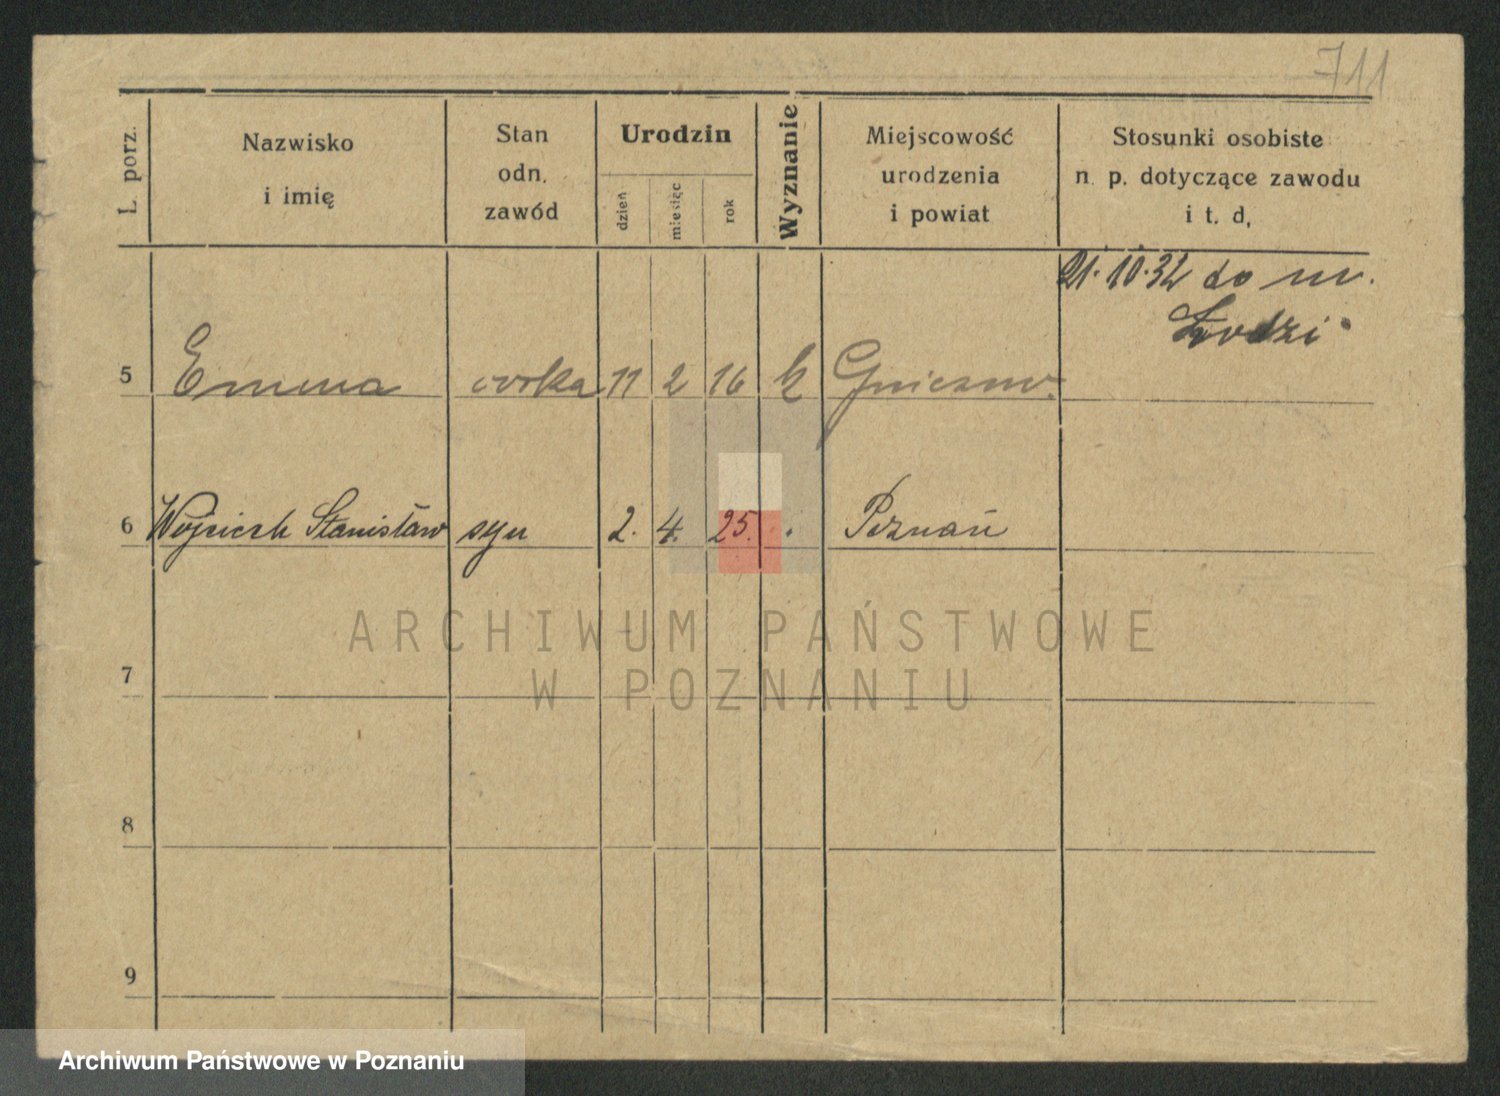 711
L. porz.
Nazwisko
i imię
Stan
odn.
zawód
Urodzin
dzień
miesięc
rok
Wyznanie
Miejscowość
urodzenia
i powiat
Stosunki osobiste
n. p. dotyczące zawodu
i t. d.
21.10.32 do m.
Łodzi
5 Emma córka 11 2 16 k
6 Wojciech Stanisław syn 2. 4. 25. Poznań
ARCHIWUM PAŃSTWOWE
W POZNANIU
7
8
9
Archiwum Państwowe w Poznaniu